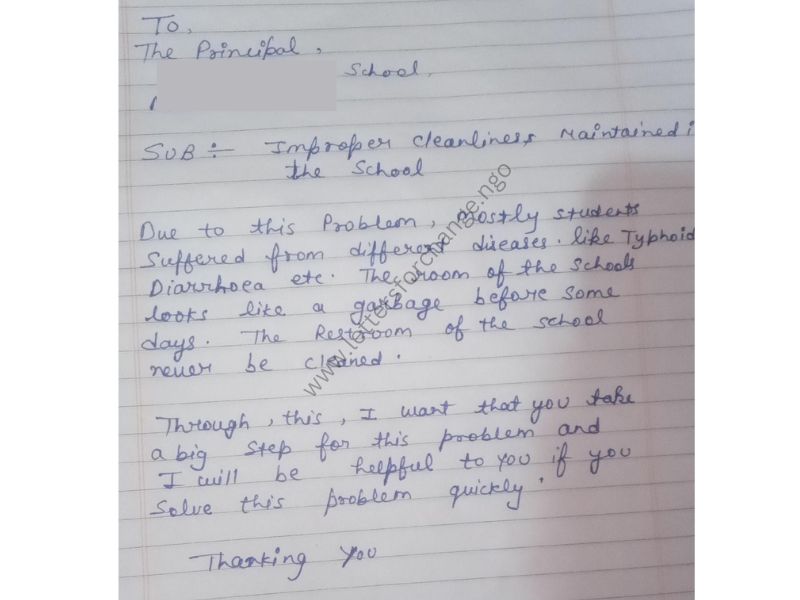 To,
The Principal,
School,
SUB :- Improper cleanliness Maintained i
the School
Due to this Problem, Mostly students
Suffered from different diseases. like Typhoid
Diarrhoea etc. The room of the schools
looks like a garbage before some
days. The Restroom of the school
never be cleaned.
Through, this, I want that you take
a big step for this problem and
I will be helpful to you if you
solve this problem quickly.
Thanking you
www.lettersforchange.ngo